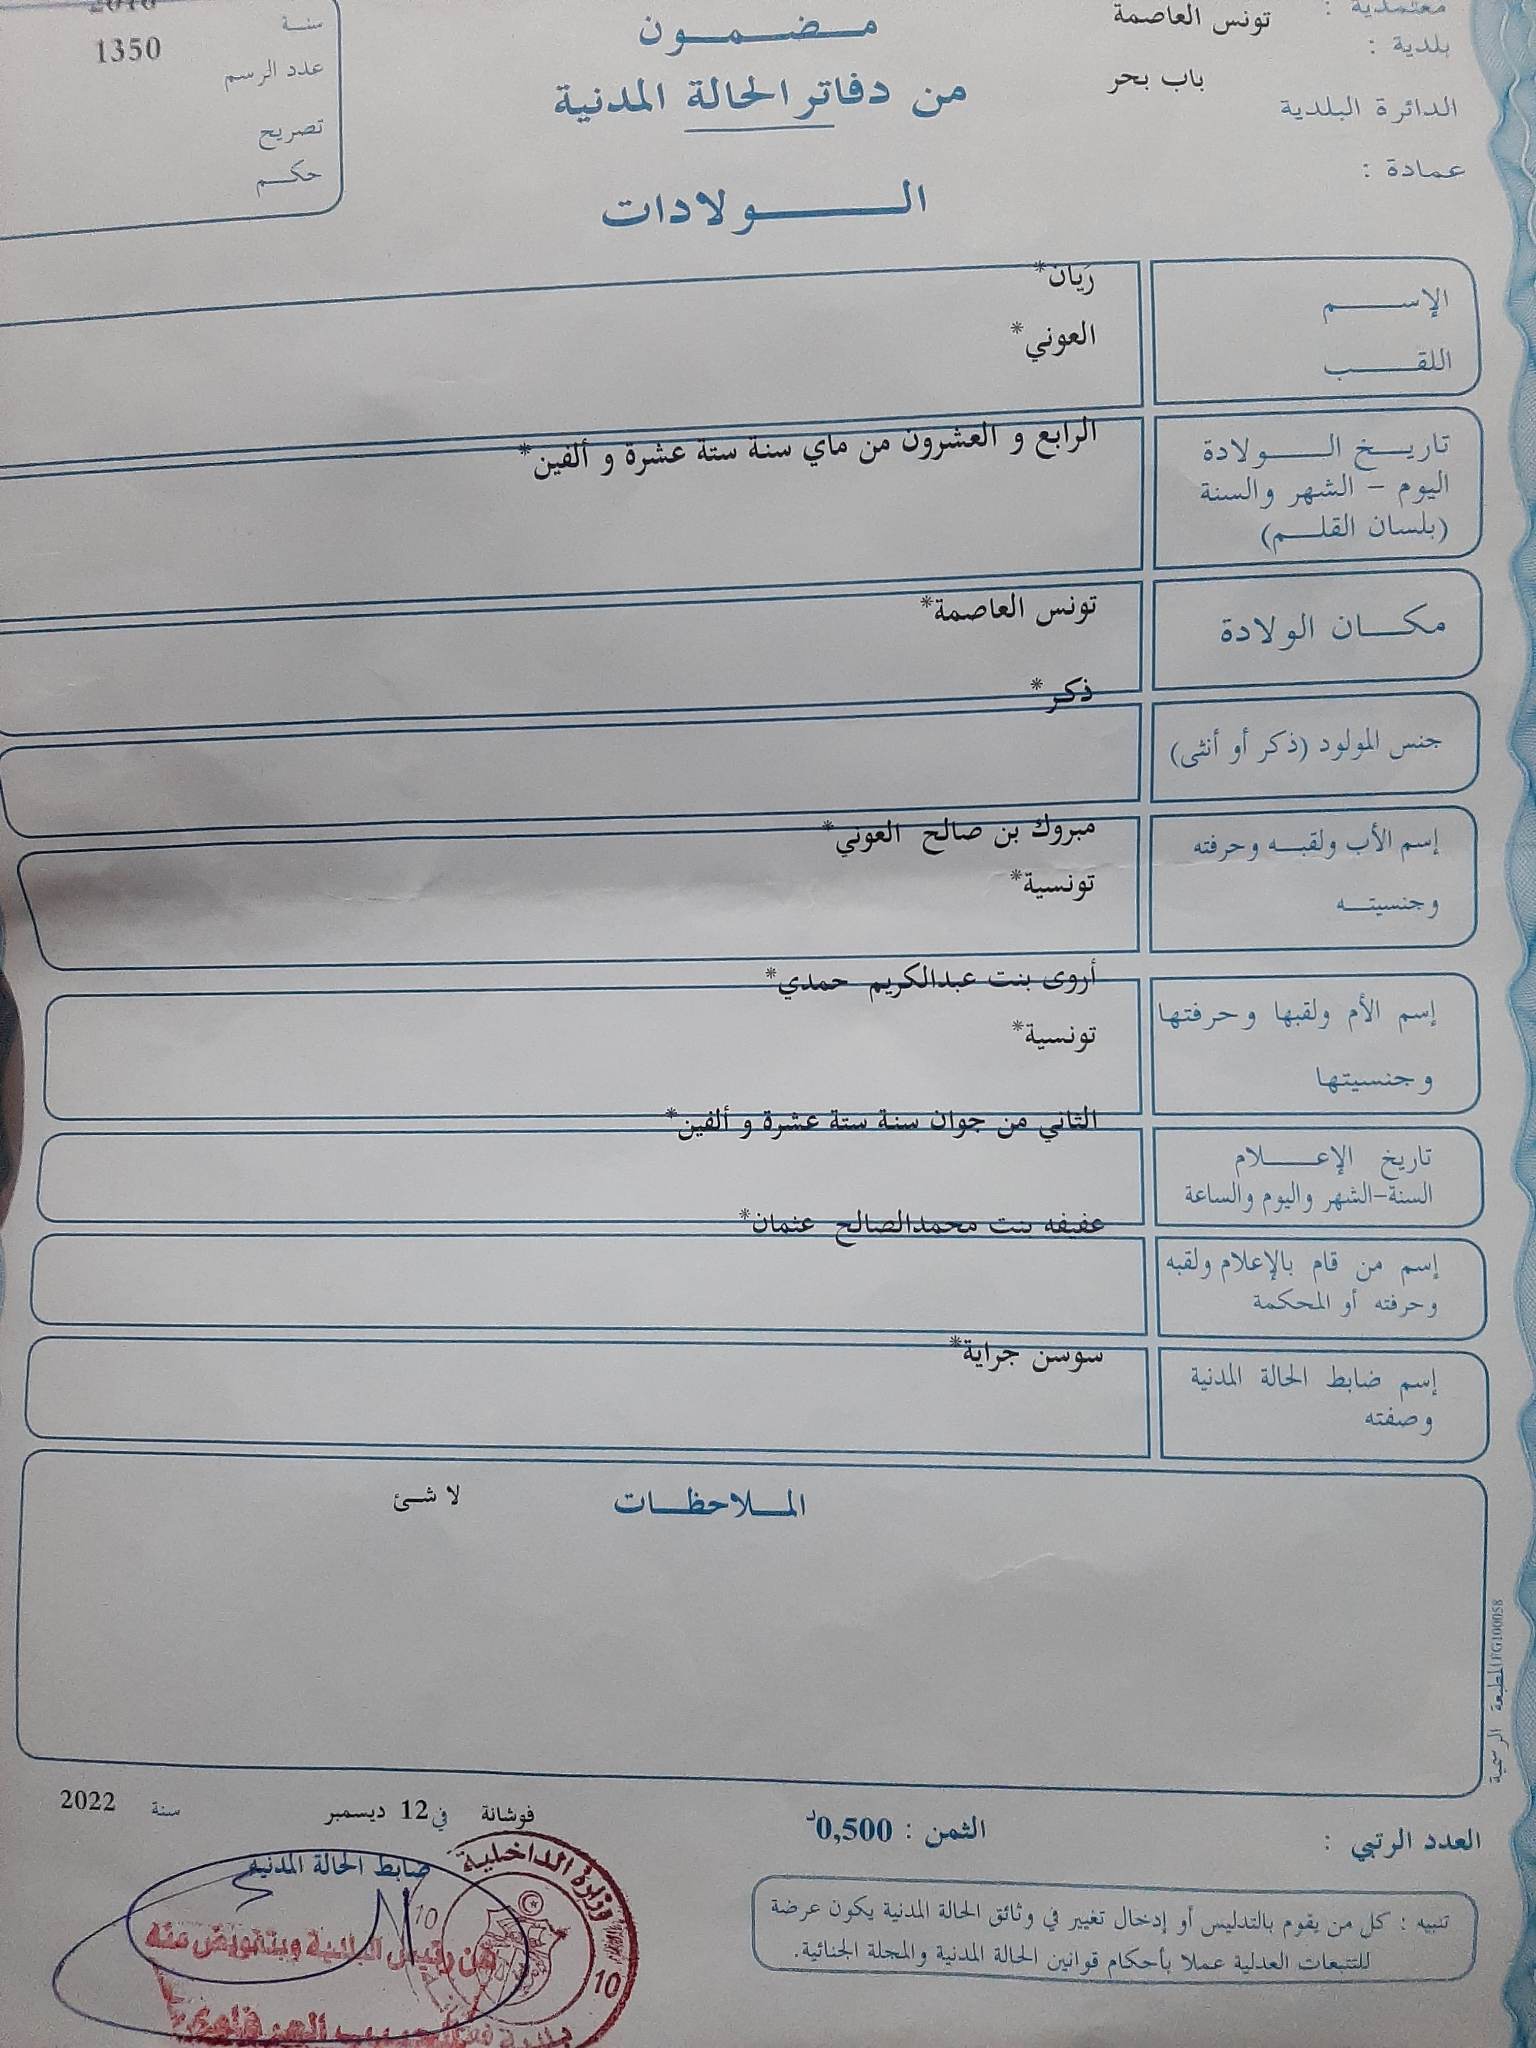 معتمدية :
تونس العاصمة
بلدية :
باب بحر
الدائرة البلدية
عمادة :
مضمون
من دفاتر الحالة المدنية
الولادات
سنة 2016
عدد الرسم 1350
تصريح
حكم
الإسم
ريان*
اللقب
العوني*
تاريخ الولادة
اليوم - الشهر والسنة
(بلسان القلم)
الرابع و العشرون من ماي سنة ستة عشرة و ألفين*
مكان الولادة
تونس العاصمة*
جنس المولود (ذكر أو أنثى)
ذكر*
إسم الأب ولقبه وحرفته
وجنسيته
مبروك بن صالح العوني*
تونسية*
إسم الأم ولقبها وحرفتها
وجنسيتها
أروى بنت عبدالكريم حمدي*
تونسية*
تاريخ الإعلام
السنة-الشهر واليوم والساعة
الثاني من جوان سنة ستة عشرة و ألفين*
إسم من قام بالإعلام ولقبه
وحرفته أو المحكمة
عفيفه بنت محمدالصالح عثمان*
إسم ضابط الحالة المدنية
وصفته
سوسن جراية*
الملاحظات
لا شئ
المطبعة الرسمية FG100058
العدد الرتبي :
الثمن : 0,500د
فوشانة في 12 ديسمبر سنة 2022
ضابط الحالة المدنية
تنبيه : كل من يقوم بالتدليس أو إدخال تغيير في وثائق الحالة المدنية يكون عرضة
للتتبعات العدلية عملا بأحكام قوانين الحالة المدنية والمجلة الجنائية.
وزارة الداخلية
10
10
عن رئيس البلدية وبتفويض منه